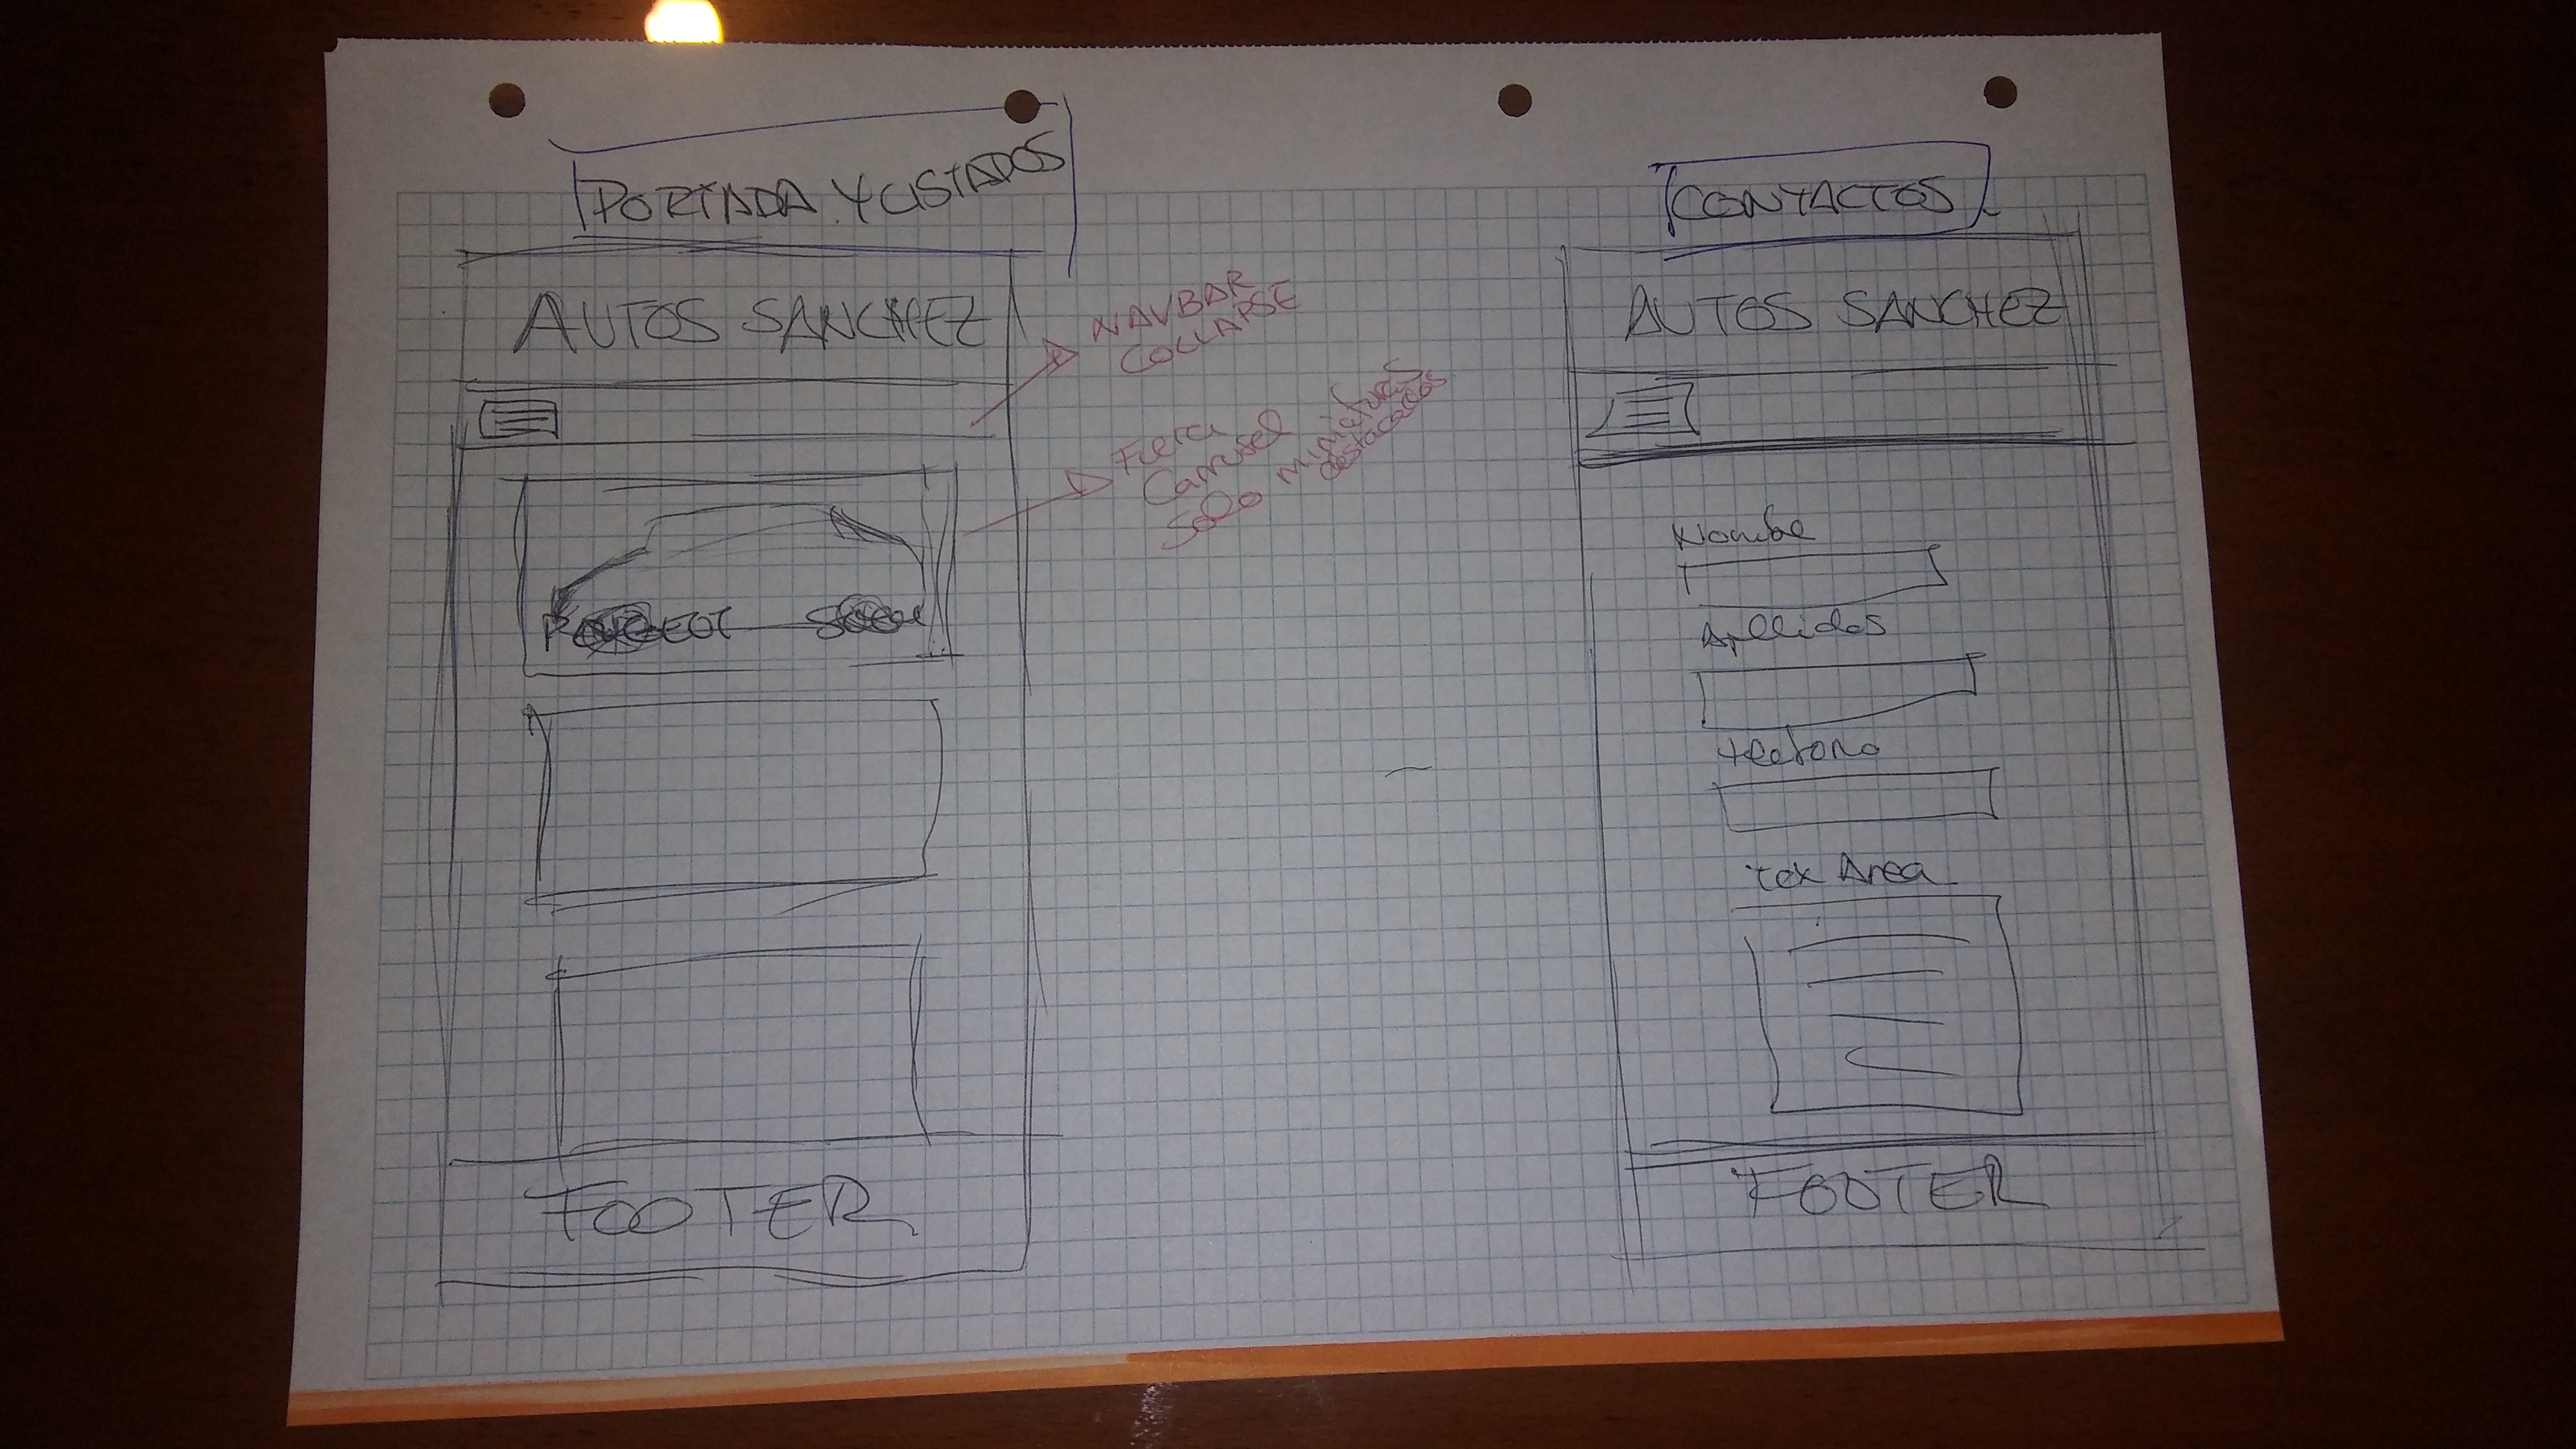 PORTADA Y LISTADOS
AUTOS SANCHEZ
NAVBAR
COLLAPSE
Fuera
Carrusel
Solo miniaturas
destacados
PEUGEOT
FOOTER
CONTACTOS
AUTOS SANCHEZ
Nombre
Apllidos
telefono
tex Area
FOOTER